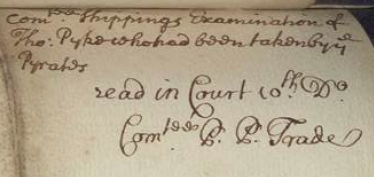 Com.^dre Shippings Examination of
Tho: Pyke who had been taken by y^e
Pyrates
read in Court 10^th. D^o.
Com^tee
Trade